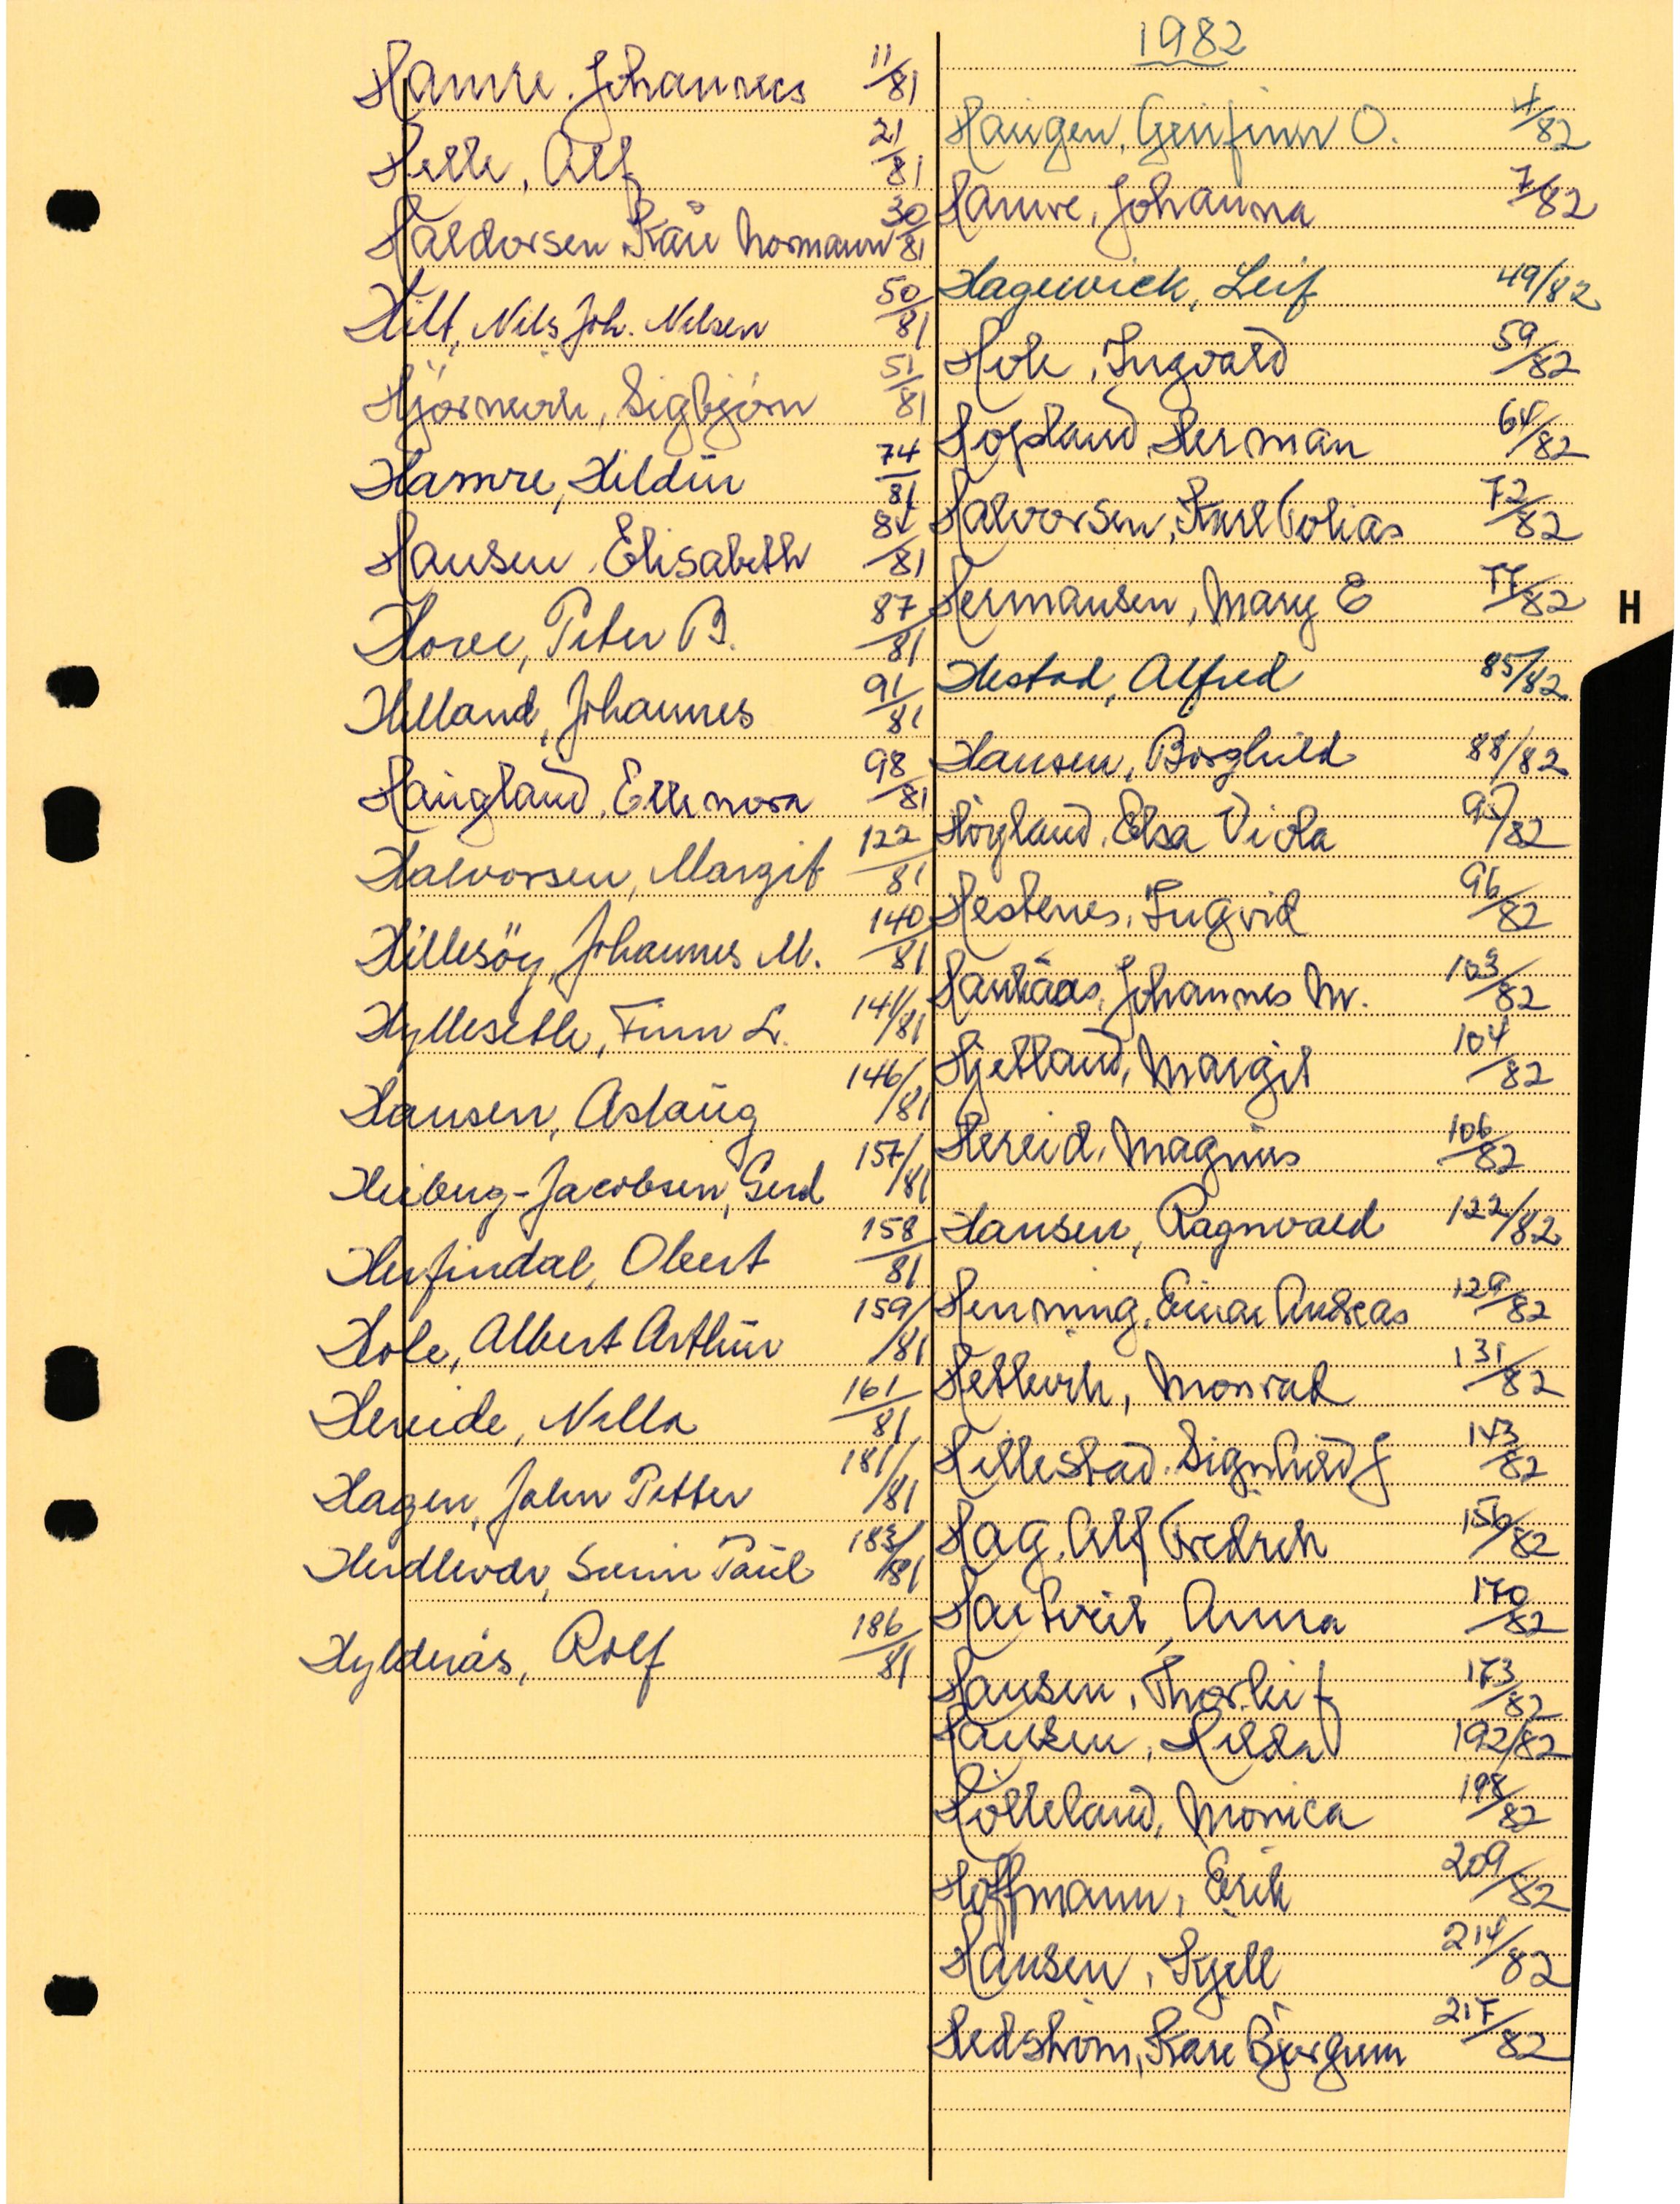 Hamre, Johannes 11/81
Helle, Alf 21/81
Haldorsen, Kåre Normann 30/81
Hilt, Nils Joh. Nilsen 50/81
Hjørnevik, Sigbjørn 51/81
Hamre, Hildur 74/81
Hansen, Elisabeth 84/81
Hove, Peter B. 87/81
Helland, Johannes 91/81
Haugland, Ellenora 98/81
Halvorsen, Margit 122/81
Hillesøy, Johannes M. 140/81
Hylleseth, Finn L. 141/81
Hansen, Aslaug 146/81
Heiberg-Jacobsen, Gerd 157/81
Herfindal, Obert 158/81
Hole, Albert Arthur 159/81
Hereide, Nella 161/81
Hagen, John Petter 181/81
Herdlevær, Paul 183/81
Hyldnås, Rolf 186/81
1982
Haugen, O. 4/82
Hamre, Johanna 7/82
Hagewick, Leif 49/82
Hole, Ingvald 59/82
Hopland, Herman 64/82
Halvorsen, Karl Tobias 72/82
Hermansen, Mary E 77/82
Hestad, Alfred 85/82
Hansen, Borghild 88/82
Høyland, Elsa Viola 92/82
Hestenes, Ingvid 96/82
Haukås, Johannes M. 103/82
Hjelland, Margit 104/82
Hereid, Magnus 106/82
Hansen, Ragnvald 122/82
Henning, Einar Andreas 129/82
Hetlevik, Monrad 131/82
Hillestad, Signhild J 143/82
Hag, Alf Fredrik 156/82
Hartveit, Anna 170/82
Hansen, Thorleif 173/82
Hansen, Hilda 192/82
Hölleland, Monica 198/82
Hoffmann, Erik 209/82
Hansen, Kjell 214/82
Hedström, Kåre Bjørgum 217/82
H